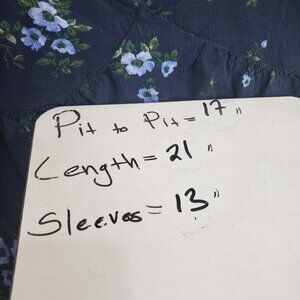 Pit to Pit = 17"
Length = 21"
Sleeves = 13"